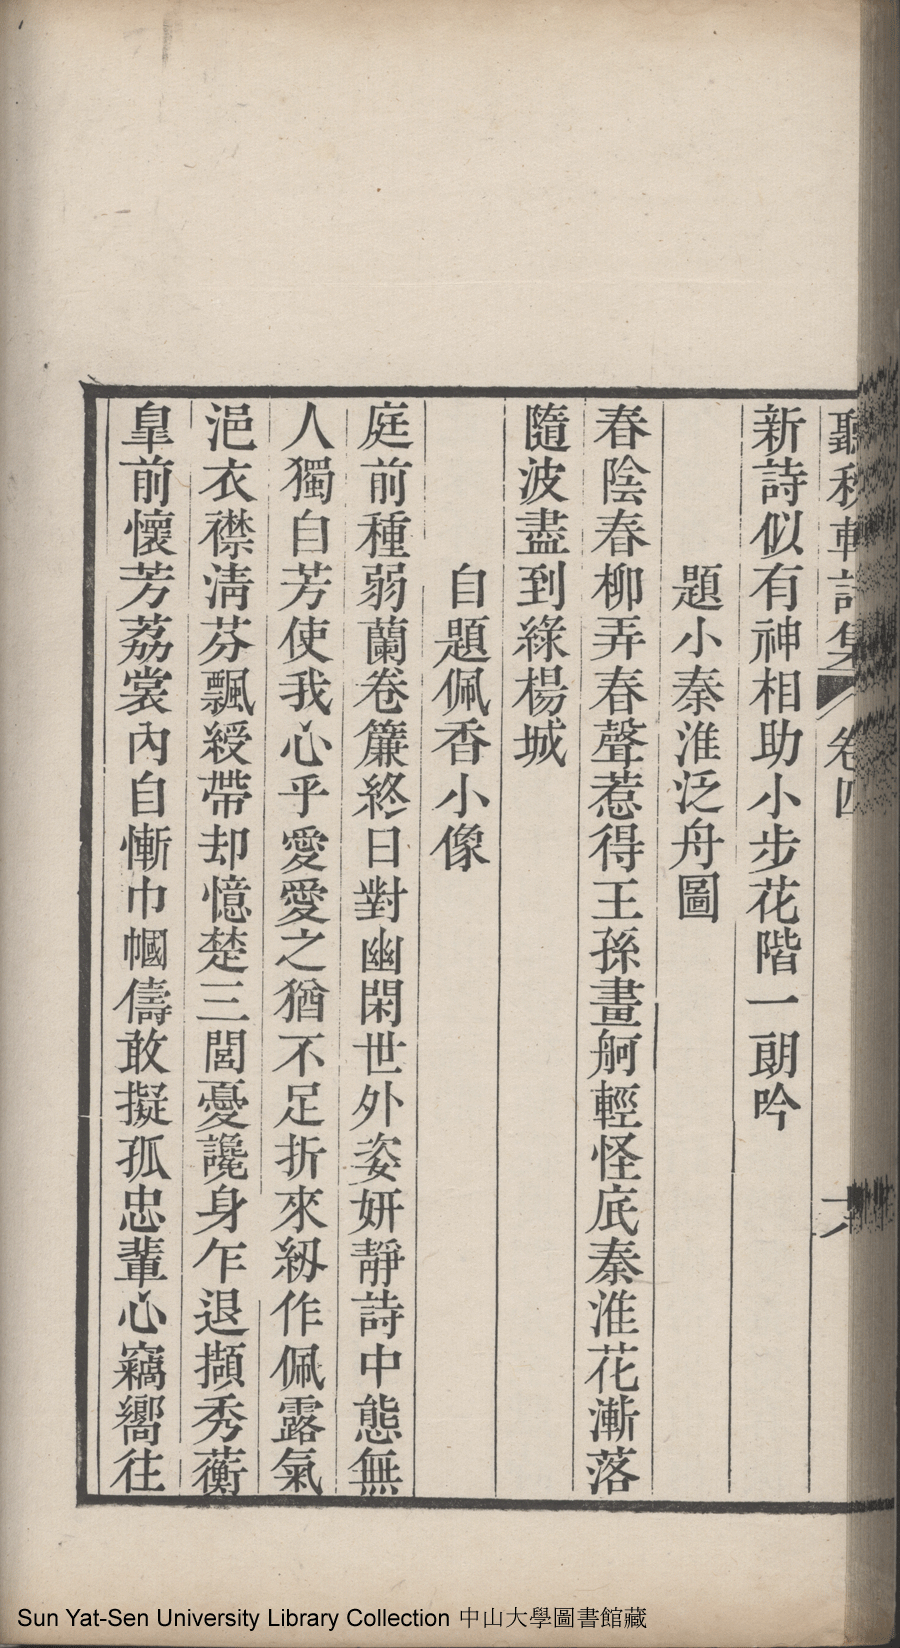 聽秋軒詩集 卷四 六
新詩似有神相助小步花階一朗吟
題小秦淮泛舟圖
春陰春柳弄春聲惹得王孫畫舸輕怪底秦淮花漸落
隨波盡到綠楊城
自題佩香小像
庭前種弱蘭卷簾終日對幽閑世外姿妍靜詩中態無
人獨自芳使我心乎愛愛之猶不足折來紉作佩露氣
浥衣襟淸芬飄綬帶却憶楚三閭憂讒身乍退擷秀蘅
皐前懷芳荔裳內自慚巾幗儔敢擬孤忠輩心竊嚮往
Sun Yat-Sen University Library Collection 中山大學圖書館藏